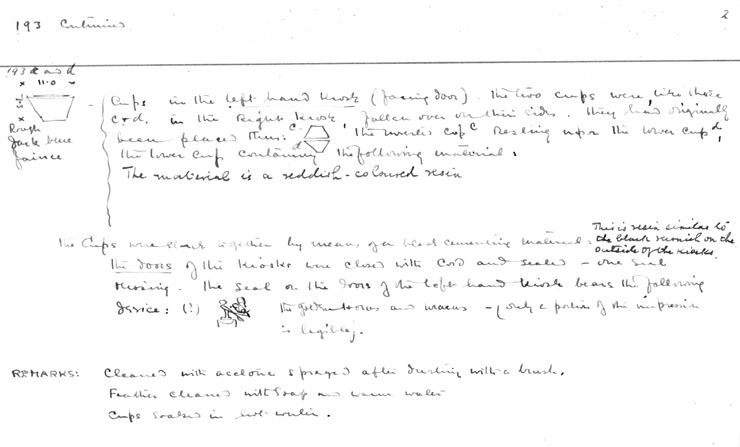 193 Continued
2
193 c and d
x 11.0
7.5
Rough
dark blue
faience
Cups in the left hand Kiosk (facing door). The two cups were, like those
c & d. in the Right Kiosk, fallen over on their sides. They had originally
been placed thus: c d The inverted cup c Resting upon the lower cup d,
the lower cup containing the following material:
The material is a reddish-coloured resin
The Cups were stuck together by means of a black cementing material:
This is resin similar to
the black varnish on the
outside of the kiosks.
The doors of the Kiosks were closed with Cord and sealed - one seal
missing. The seal on the doors of the left hand Kiosk bears the following
device: (?) the god Horus and - (only a portion of the impression
is legible).
REMARKS: Cleaned with acetone & sprayed after dusting with a brush.
Feather cleaned with soap and warm water
Cups soaked in hot water.